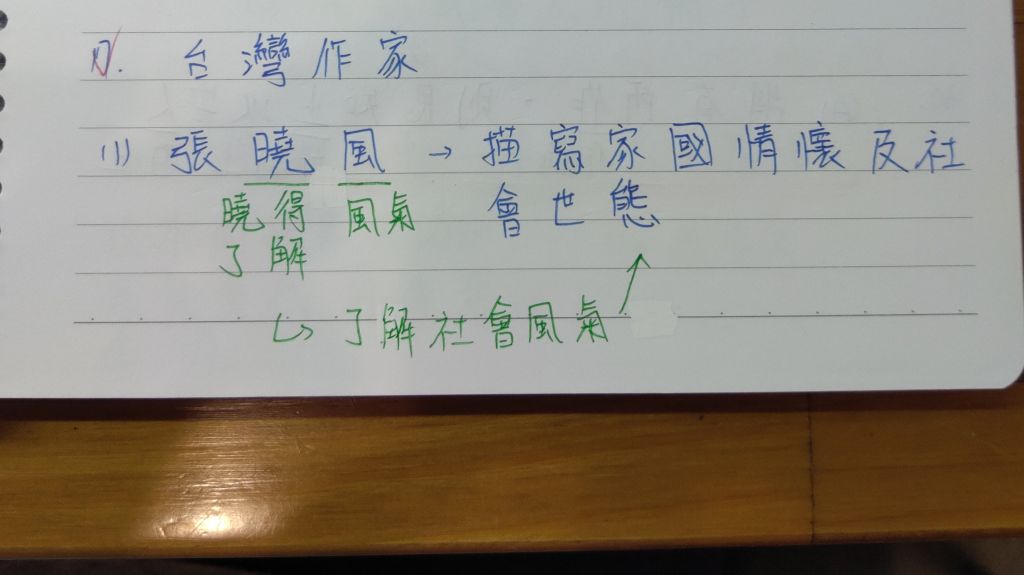 台灣作家
(1) 張曉風 → 描寫家國情懷及社
會世態
曉得 風氣
了解
↳ 了解社會風氣